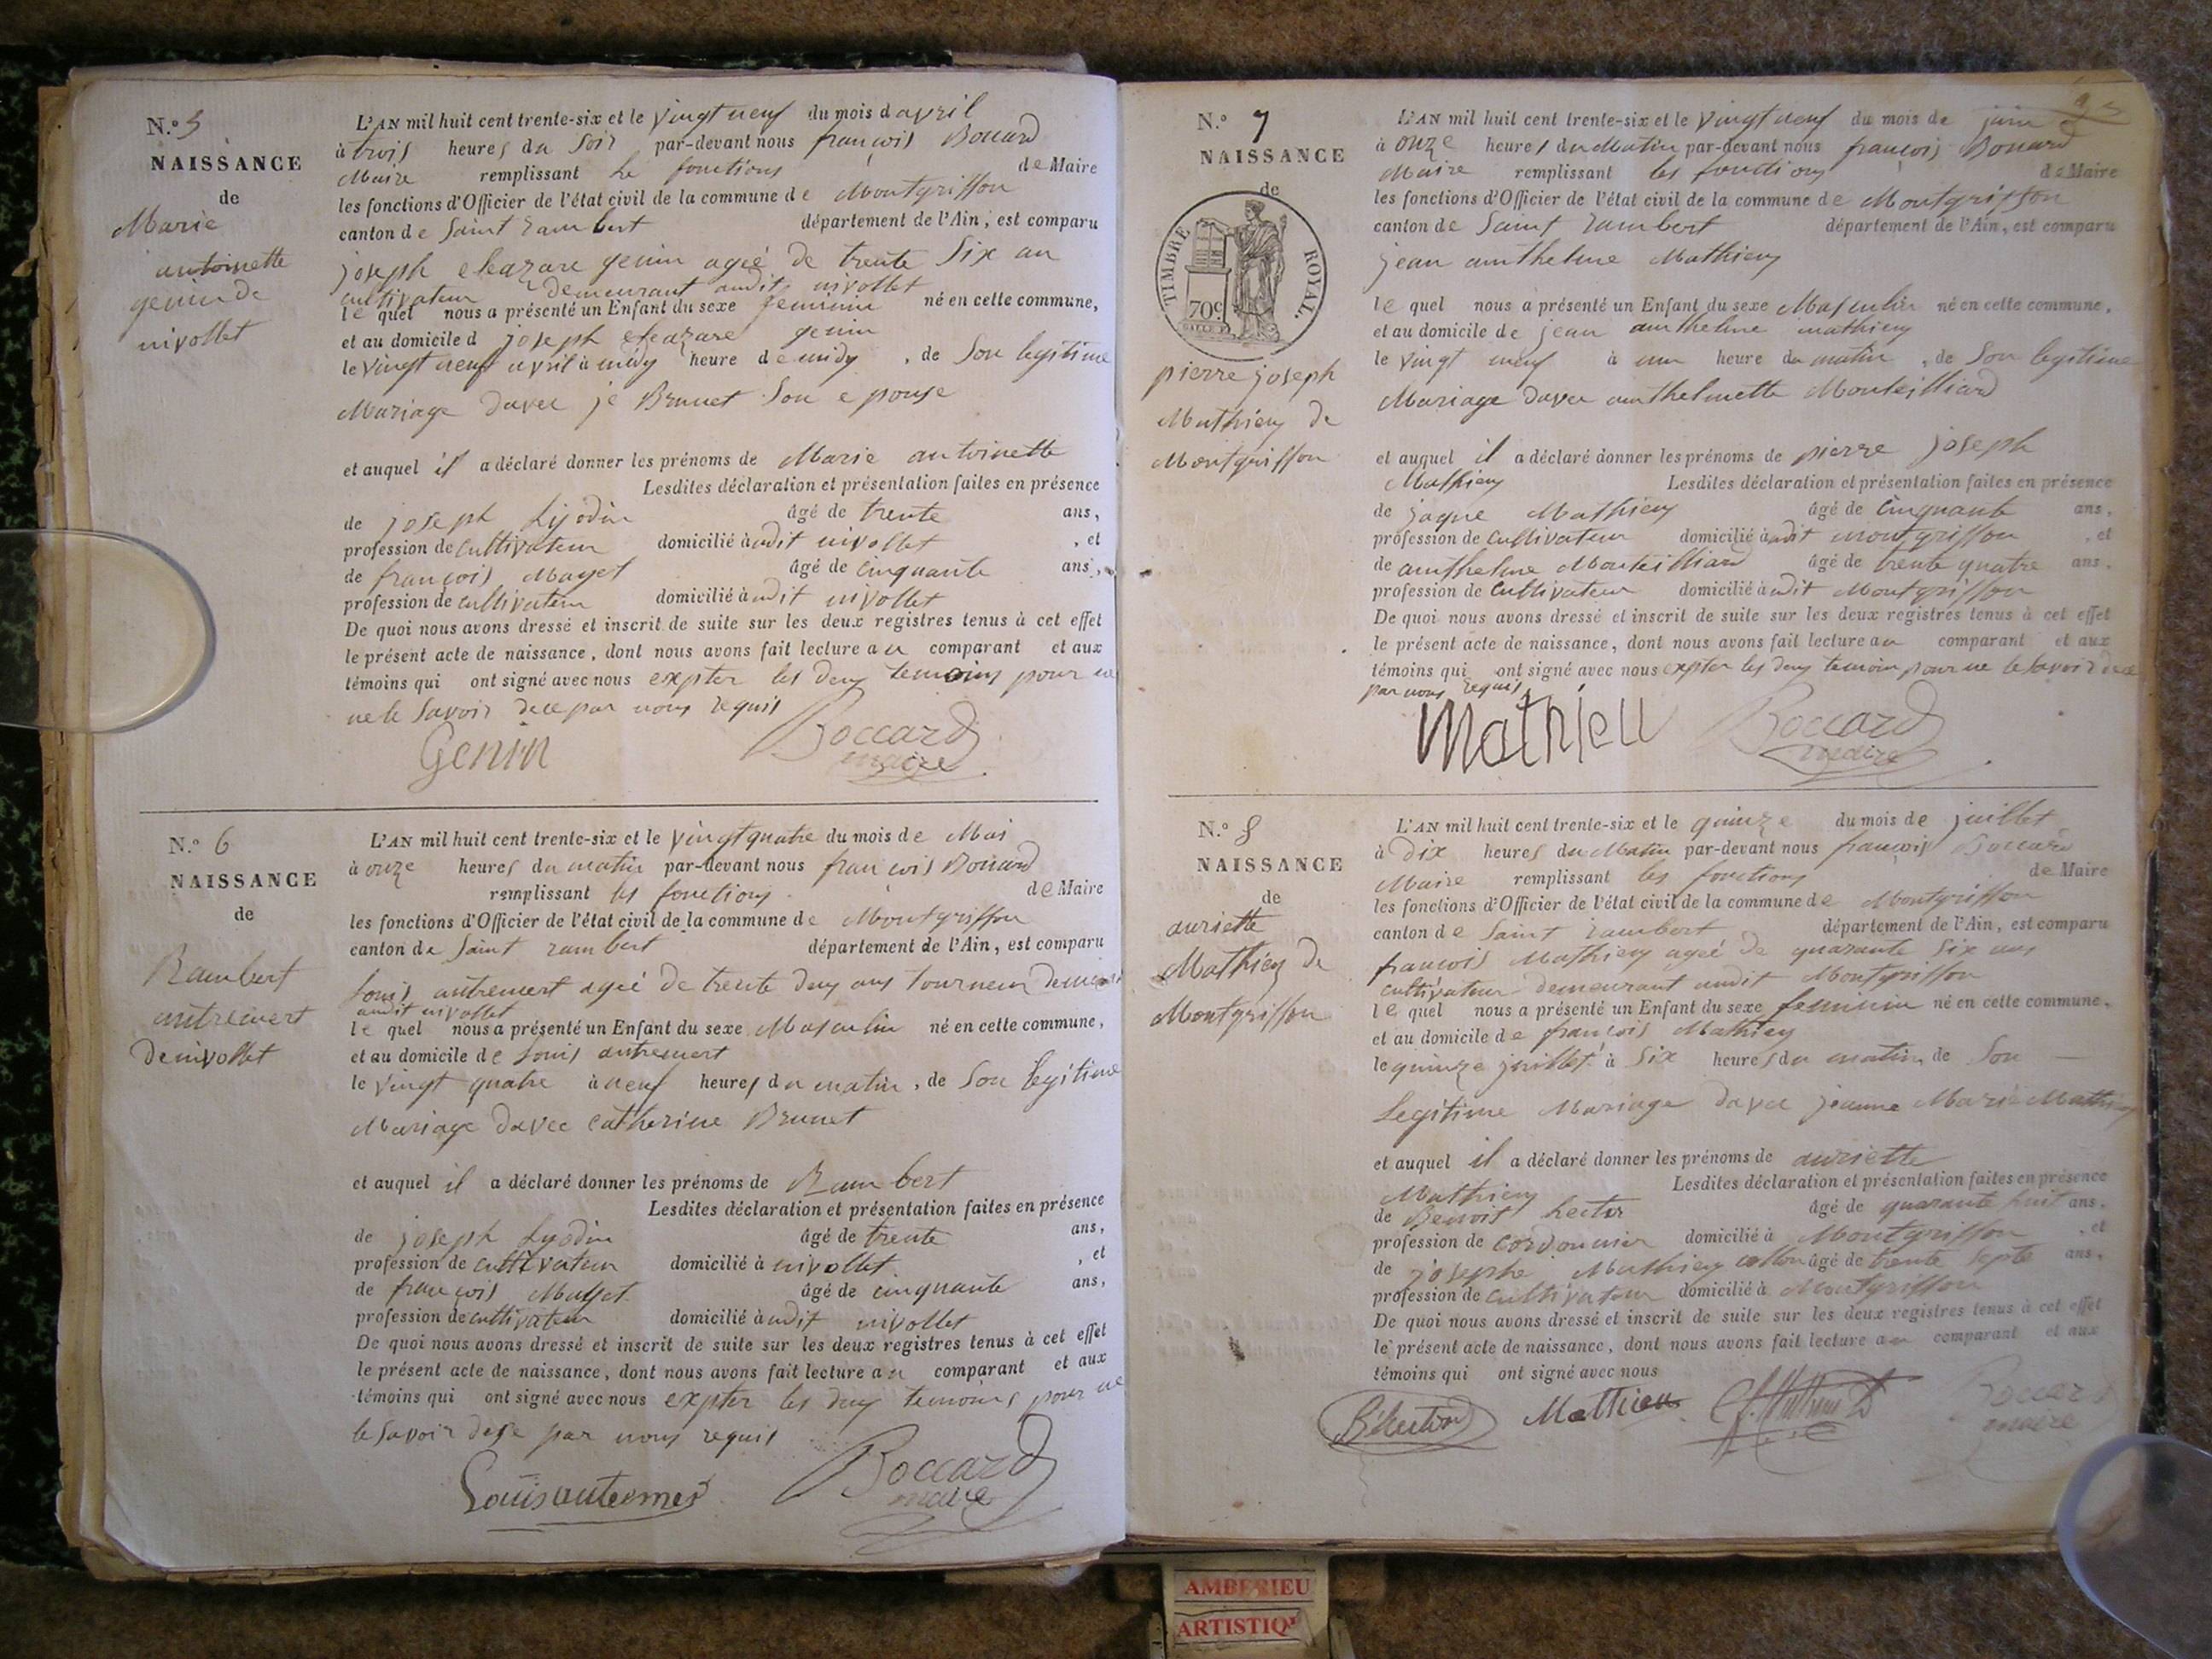 N.º 5
NAISSANCE
de
Marie
antoinette
genin de
nivollet
L'AN mil huit cent trente-six et le vingt neuf du mois d avril
à trois heures du Soir par-devant nous françois Bocard
Maire remplissant les fonctions de Maire
les fonctions d'Officier de l'état civil de la commune de Montgriffon
canton de Saint rambert département de l'Ain, est comparu
joseph eleazare genin ageé de trente Six an
cultivateur demeurant audit nivollet
le quel nous a présenté un Enfant du sexe feminin né en cette commune,
et au domicile d joseph eleazare genin
le vingt neuf avril à midy heure de midy , de Son legitime
Mariage davec je Brunet Son epouse
et auquel il a déclaré donner les prénoms de Marie antoinette
Lesdites déclaration et présentation faites en présence
de joseph âgé de trente ans,
profession de cultivateur domicilié à audit nivollet , et
de françois Mayet âgé de cinquante ans,
profession de cultivateur domicilié à audit nivollet
De quoi nous avons dressé et inscrit de suite sur les deux registres tenus à cet effet
le présent acte de naissance, dont nous avons fait lecture au comparant et aux
témoins qui ont signé avec nous expter les deux temoins pour ne
ne le Savoir dece par nous requis
Genin
Boccard
maire
N.º 6
NAISSANCE
de
Rambert
autremert
de nivollet
L'AN mil huit cent trente-six et le vingt quatre du mois de Mai
à onze heures du matin par-devant nous françois Bocard
remplissant les fonctions de Maire
les fonctions d'Officier de l'état civil de la commune de Montgriffon
canton de Saint rambert département de l'Ain, est comparu
Louis autremert ageé de trente deux ans tourneur
audit nivollet
le quel nous a présenté un Enfant du sexe Masculin né en cette commune,
et au domicile de Louis autremert
le vingt quatre à neuf heures du matin, de Son legitime
Mariage davec catherine Brunet
et auquel il a déclaré donner les prénoms de Rambert
Lesdites déclaration et présentation faites en présence
de joseph âgé de trente ans,
profession de cultivateur domicilié à nivollet , et
de françois Mayet âgé de cinquante ans,
profession de cultivateur domicilié à audit nivollet
De quoi nous avons dressé et inscrit de suite sur les deux registres tenus à cet effet
le présent acte de naissance, dont nous avons fait lecture au comparant et aux
témoins qui ont signé avec nous expter les deux temoins pour ne
le Savoir par nous requis
Louis
Boccard
maire
N.º 7
NAISSANCE
de
TIMBRE ROYAL.
70c
pierre joseph
Mathieu de
Montgriffon
L'AN mil huit cent trente-six et le vingt neuf du mois de juin
à onze heures du Matin par-devant nous françois Bocard
Maire remplissant les fonctions de Maire
les fonctions d'Officier de l'état civil de la commune de Montgriffon
canton de Saint rambert département de l'Ain, est comparu
jean anthelme Mathieu
le quel nous a présenté un Enfant du sexe Masculin né en cette commune,
et au domicile de jean anthelme mathieu
le vingt neuf à une heure du matin , de Son legitime
Mariage davec anthelmette Monteilliard
et auquel il a déclaré donner les prénoms de pierre joseph
Mathieu Lesdites déclaration et présentation faites en présence
de jaque Mathieu âgé de cinquante ans,
profession de cultivateur domicilié à audit montgriffon , et
de anthelme Monteilliard âgé de trente quatre ans,
profession de cultivateur domicilié à audit Montgriffon
De quoi nous avons dressé et inscrit de suite sur les deux registres tenus à cet effet
le présent acte de naissance, dont nous avons fait lecture au comparant et aux
témoins qui ont signé avec nous expter les deux temoin pour ne le Savoir
par nous requis
Mathieu
Boccard
maire
N.º 8
NAISSANCE
de
auriette
Mathieu de
Montgriffon
L'AN mil huit cent trente-six et le quinze du mois de juillet
à dix heures du Matin par-devant nous françois Bocard
Maire remplissant les fonctions de Maire
les fonctions d'Officier de l'état civil de la commune de Montgriffon
canton de Saint rambert département de l'Ain, est comparu
françois Mathieu ageé de quarante Six ans
cultivateur demeurant audit Montgriffon
le quel nous a présenté un Enfant du sexe feminin né en cette commune,
et au domicile de françois Mathieu
le quinze juillet à Six heures du matin de Son
Legitime Mariage davec jeanne Marie Mathieu
et auquel il a déclaré donner les prénoms de auriette
Mathieu Lesdites déclaration et présentation faites en présence
de Benoit hector âgé de quarante huit ans,
profession de cordonnier domicilié à Montgriffon , et
de josephe Mathieu âgé de trente septe ans,
profession de cultivateur domicilié à Montgriffon
De quoi nous avons dressé et inscrit de suite sur les deux registres tenus à cet effet
le présent acte de naissance, dont nous avons fait lecture au comparant et aux
témoins qui ont signé avec nous
Mathieu
Boccard
maire
AMBERIEU
ARTISTIQU